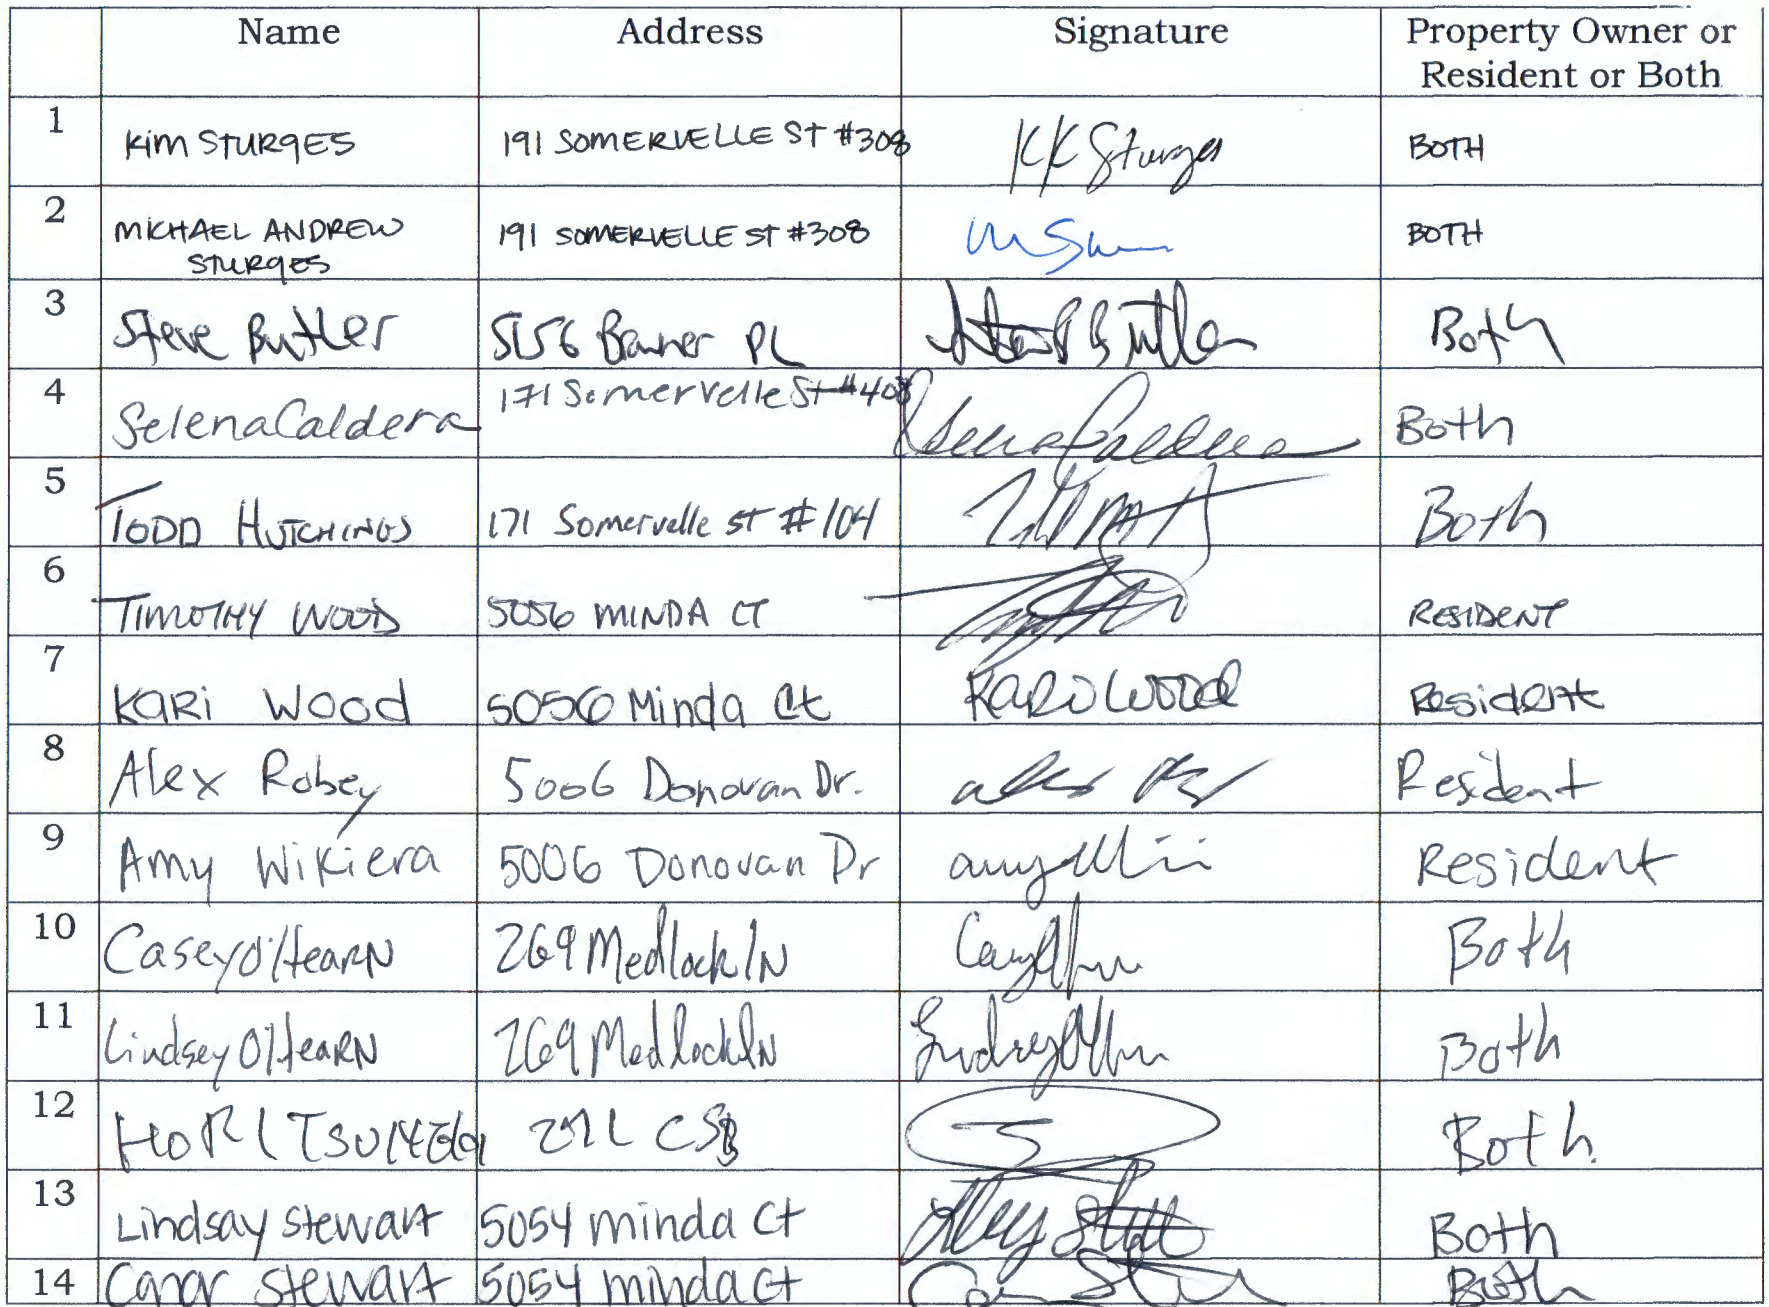 Name Address Signature Property Owner or
Resident or Both
1 Kim STURGES 191 SOMERVELLE ST #308 KK Sturges BOTH
2 MICHAEL ANDREW 191 SOMERVELLE ST #308 BOTH
STURGES
3 Steve Butler 5156 Bawner PL Butler Both
4 Selena Caldera 171 Somervelle St #408 Selena Caldera Both
5 TODD HUTCHINGS 171 Somervelle St #104 Both
6 TIMOTHY WOOD 5056 MINDA CT RESIDENT
7 KaRi Wood 5056 Minda Ct KARI WOOD Resident
8 Alex Robey 5006 Donovan Dr. Resident
9 Amy Wikiera 5006 Donovan Dr amy Resident
10 Casey O'HearN 269 Medlock lN Both
11 Lindsey O'HeaRN 269 Medlock lN Both
12 HORI Both
13 Lindsay Stewart 5054 minda Ct Both
14 Conor Stewart 5054 minda Ct Both